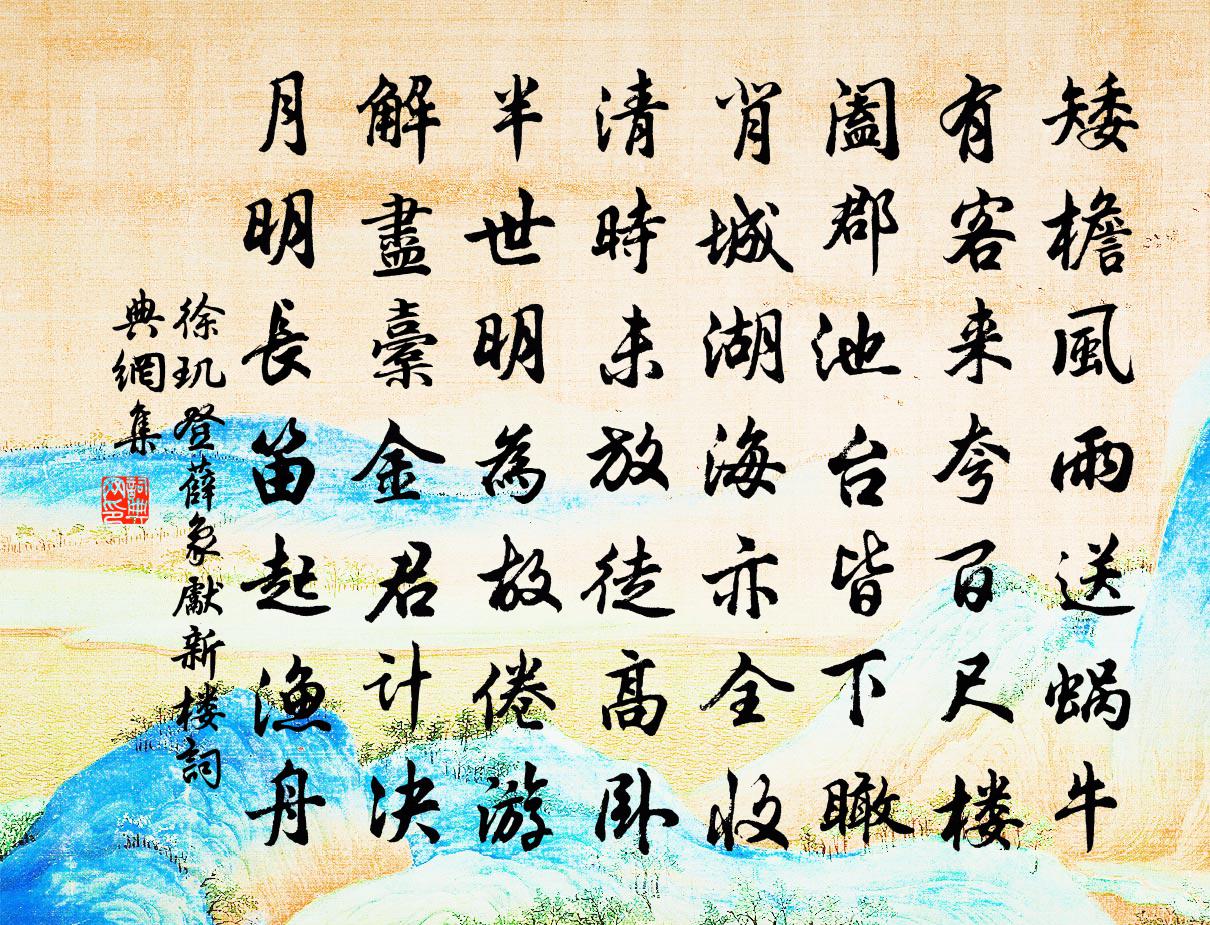 矮檐風雨送蜗牛
有客来夸百尺楼
阖郡池台皆下瞰
肖城湖海亦全收
清時未放徒高卧
半世明為故倦游
解盡橐金君计决
月明長笛起渔舟
徐玑登薛象獻新楼詞
典網集